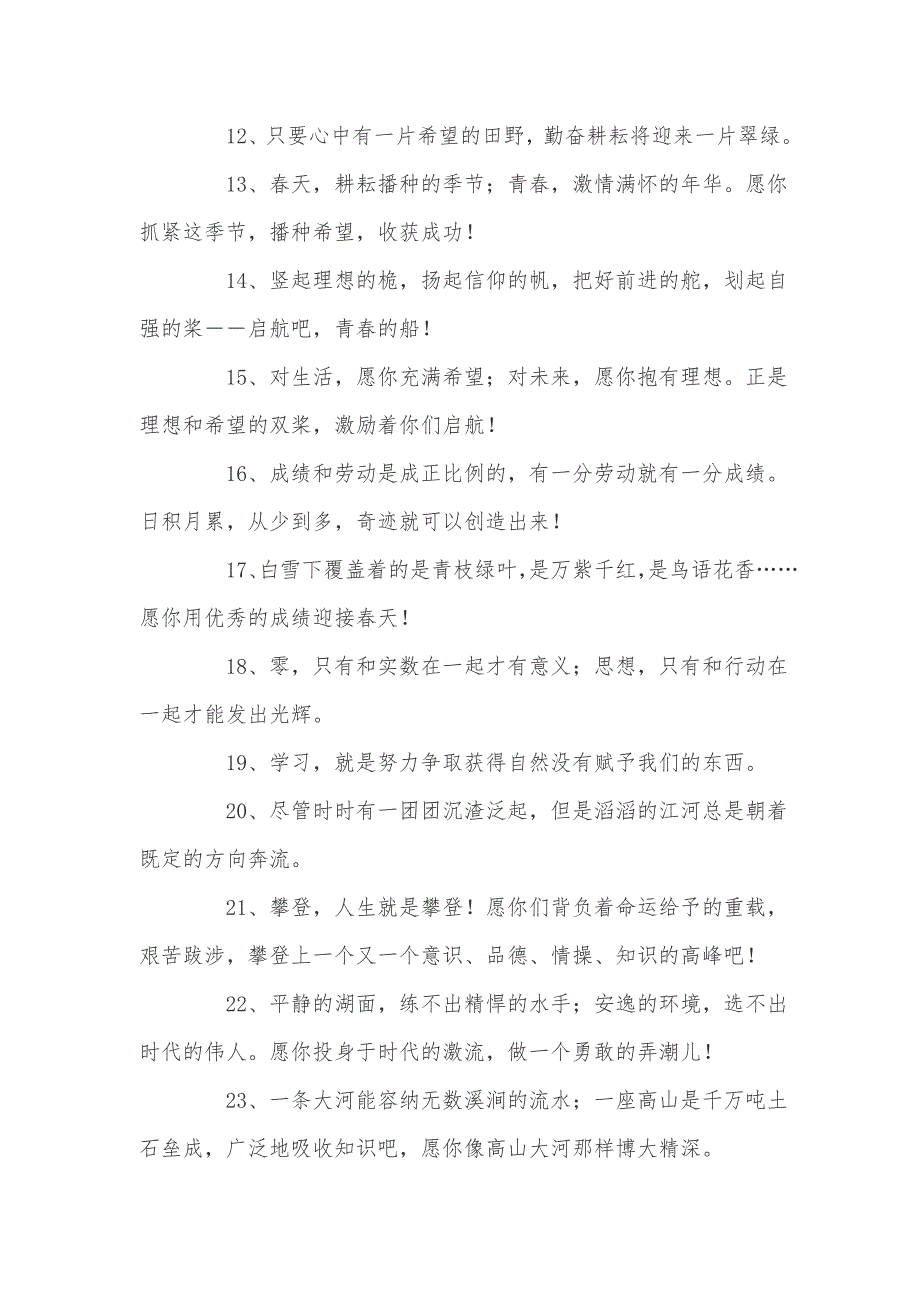 12、只要心中有一片希望的田野，勤奋耕耘将迎来一片翠绿。
13、春天，耕耘播种的季节；青春，激情满怀的年华。愿你
抓紧这季节，播种希望，收获成功！
14、竖起理想的桅，扬起信仰的帆，把好前进的舵，划起自
强的桨－－启航吧，青春的船！
15、对生活，愿你充满希望；对未来，愿你抱有理想。正是
理想和希望的双桨，激励着你们启航！
16、成绩和劳动是成正比例的，有一分劳动就有一分成绩。
日积月累，从少到多，奇迹就可以创造出来！
17、白雪下覆盖着的是青枝绿叶，是万紫千红，是鸟语花香……
愿你用优秀的成绩迎接春天！
18、零，只有和实数在一起才有意义；思想，只有和行动在
一起才能发出光辉。
19、学习，就是努力争取获得自然没有赋予我们的东西。
20、尽管时时有一团团沉渣泛起，但是滔滔的江河总是朝着
既定的方向奔流。
21、攀登，人生就是攀登！愿你们背负着命运给予的重载，
艰苦跋涉，攀登上一个又一个意识、品德、情操、知识的高峰吧！
22、平静的湖面，练不出精悍的水手；安逸的环境，选不出
时代的伟人。愿你投身于时代的激流，做一个勇敢的弄潮儿！
23、一条大河能容纳无数溪涧的流水；一座高山是千万吨土
石垒成，广泛地吸收知识吧，愿你像高山大河那样博大精深。